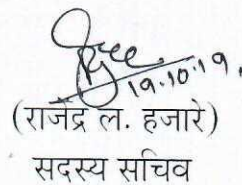 19.10.19.
(राजेंद्र ल. हजारे)
सदस्य सचिव